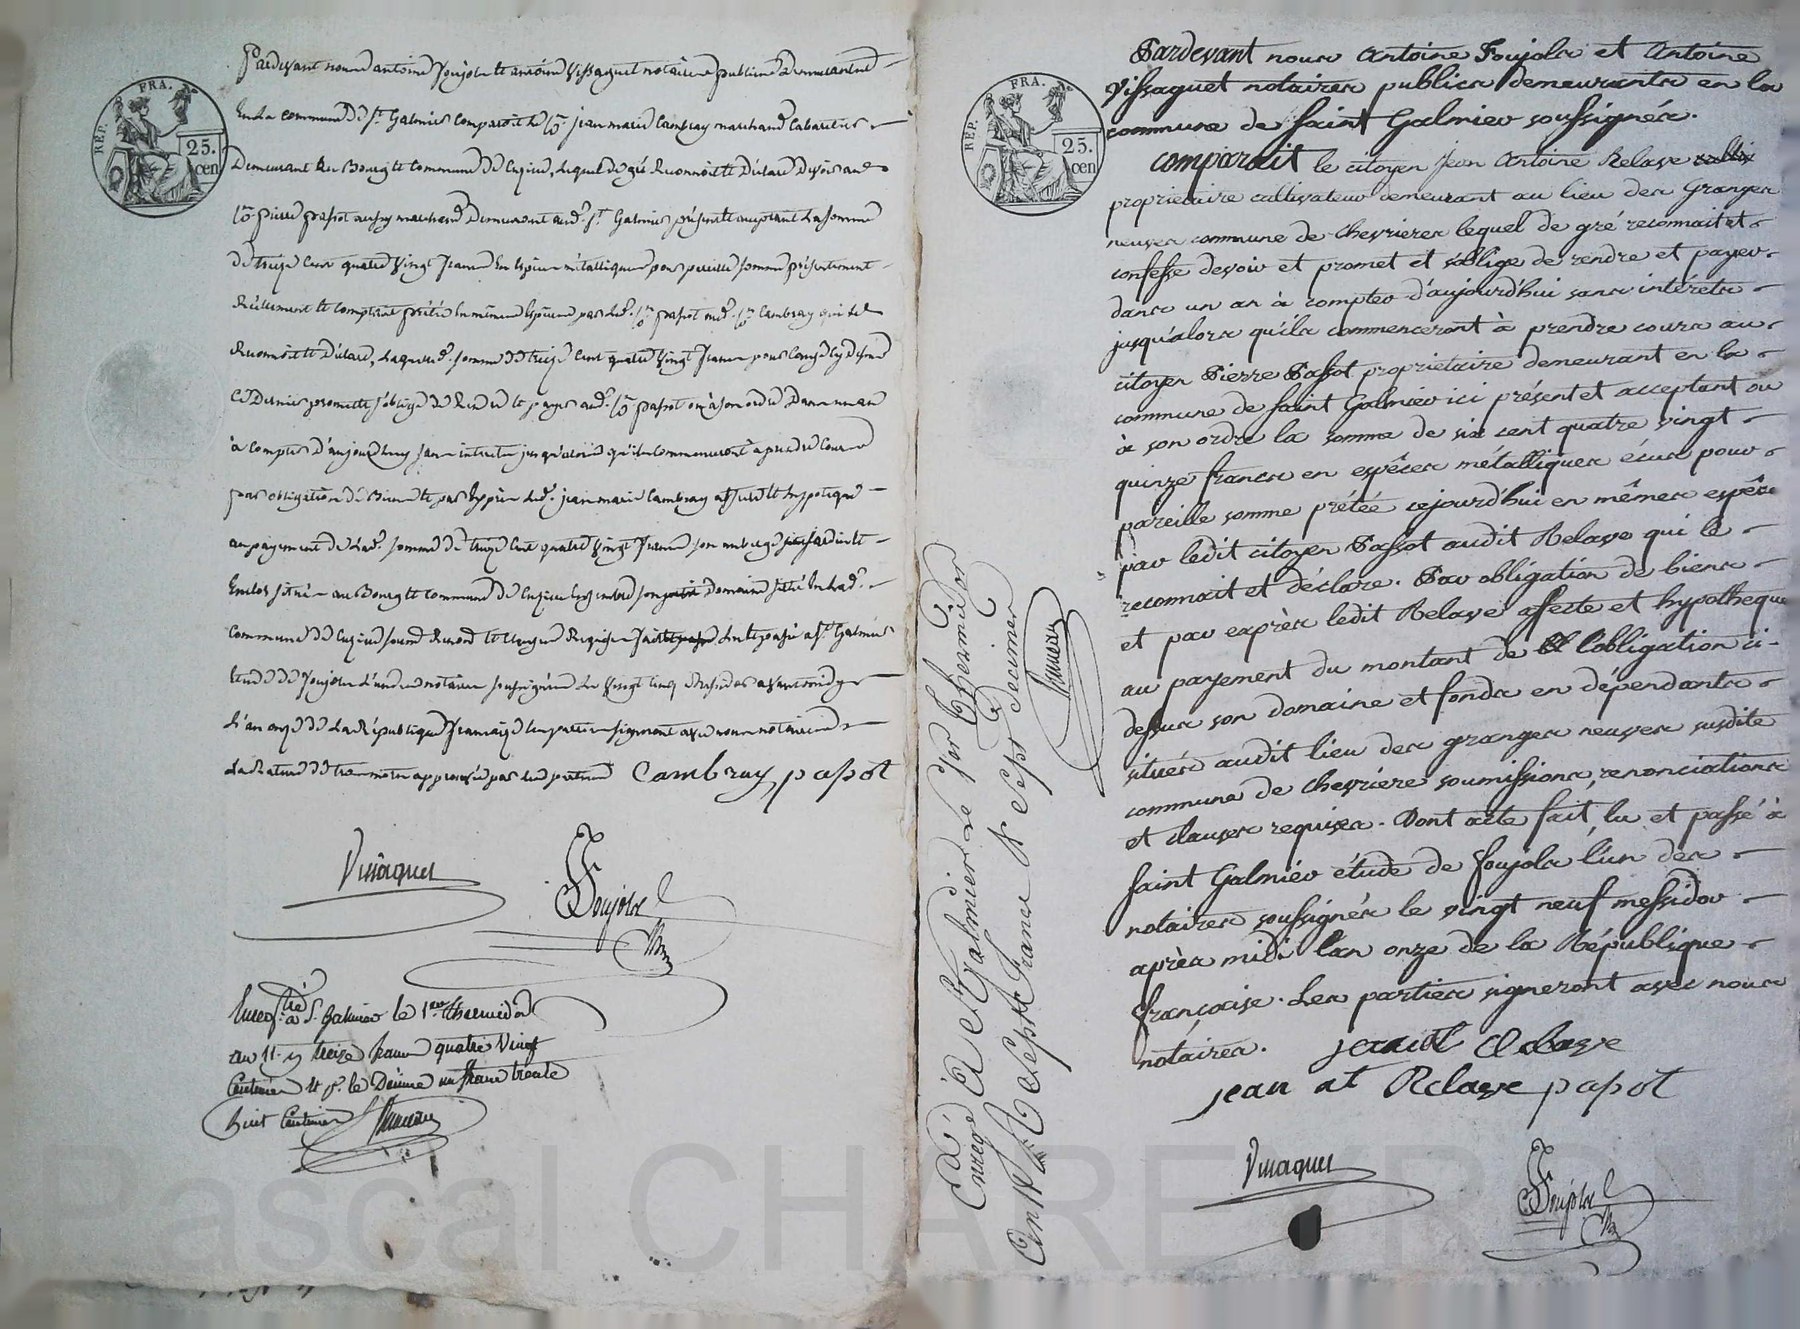 REP. FRA.
25.
cen
Pardevant nous antoine foujols et antoine Vissaguet notaires publics demeurant
En La commune de St. Galmier Comparoit le Cn. jean marie Cambray marchand Cabaretier
Demeurant au Bourg et Commune de Cuzieu, Lequel de gré Reconnoit et Déclare devoir au
Cn. pierre passot aussy marchand Demeurant aud. St. Galmier présent et acceptant La somme
De treize Cent quatre Vingt francs En Espèces métalliques pour pareille somme présentement
Réellement et Comptant prêtée En mêmes Espèces par led. Cn. passot aud. Cn. Cambray qui le
Reconnoit et Déclare, Laquelle d. somme de treize Cent quatre Vingt francs
Ce Dernier promet et s'oblige de Rendre et payer aud. Cn. passot ou à son ordre Dans un an
à Compter d'aujourd'huy sans intérêts jusqu'alors qu'ils Commenceront à prendre Cours
par obligation de Biens et par Exprès led. jean marie Cambray affecte et hypotèque
au payement de Lad. somme de treize Cent quatre Vingt francs son auberge jardin et
Enclos situés au Bourg et Commune de Cuzieu son domaine situé En lad.
Commune de Cuzieu soum. Renon. et Clauses Requises fait et passé à St. Galmier
Etude de foujols L'un des notaires soussignés Le Vingt Cinq Messidor avant midy
L'an onze de La République française Les parties signeront avec nous notaires
La Rature de trois mots approuvée par les parties Cambray passot
Vissaguet
Foujols
Enregtré à St. Galmier le 1er. thermidor
an 11. treize francs quatre Vingt
Centimes le Décime un franc trente
huit Centimes
Enregé à St Galmier Le 1er Thermidor
an 11 Sept francs
Sept decimes
REP. FRA.
25.
cen
Pardevant nous Antoine Foujols et Antoine
Vissaguet notaires publics demeurants en la
commune de Saint Galmier soussignés.
Comparait le citoyen Jean Antoine Relave
propriétaire cultivateur demeurant au lieu des Granges
neuves commune de Chevrières lequel de gré reconnait et
confesse devoir et promet et s'oblige de rendre et payer
dans un an à compter d'aujourd'hui sans intérêts
jusqu'alors qu'ils commenceront à prendre cours au
citoyen Pierre Passot propriétaire demeurant en la
commune de Saint Galmier ici présent et acceptant ou
à son ordre la somme de six cent quatre vingt
quinze francs en espèces métalliques écus pour
pareille somme prêtée cejourd'hui en mêmes espèces
par ledit citoyen Passot audit Relave qui le
reconnait et déclare. Par obligation de biens
et par exprès ledit Relave affecte et hypotheque
au payement du montant de l'obligation ci-
dessus son domaine et fonds en dépendants
situés audit lieu des granges neuves susdite
commune de Chevrières soumissions, renonciations
et clauses requises. Dont acte fait, lu et passé à
Saint Galmier étude de Foujols l'un des
notaires soussignés le vingt neuf messidor
après midi l'an onze de la République
française. Les parties signeront avec nous
notaires.
jean at Relave passot
Vissaguet
Foujols
Pascal CHAREYRON